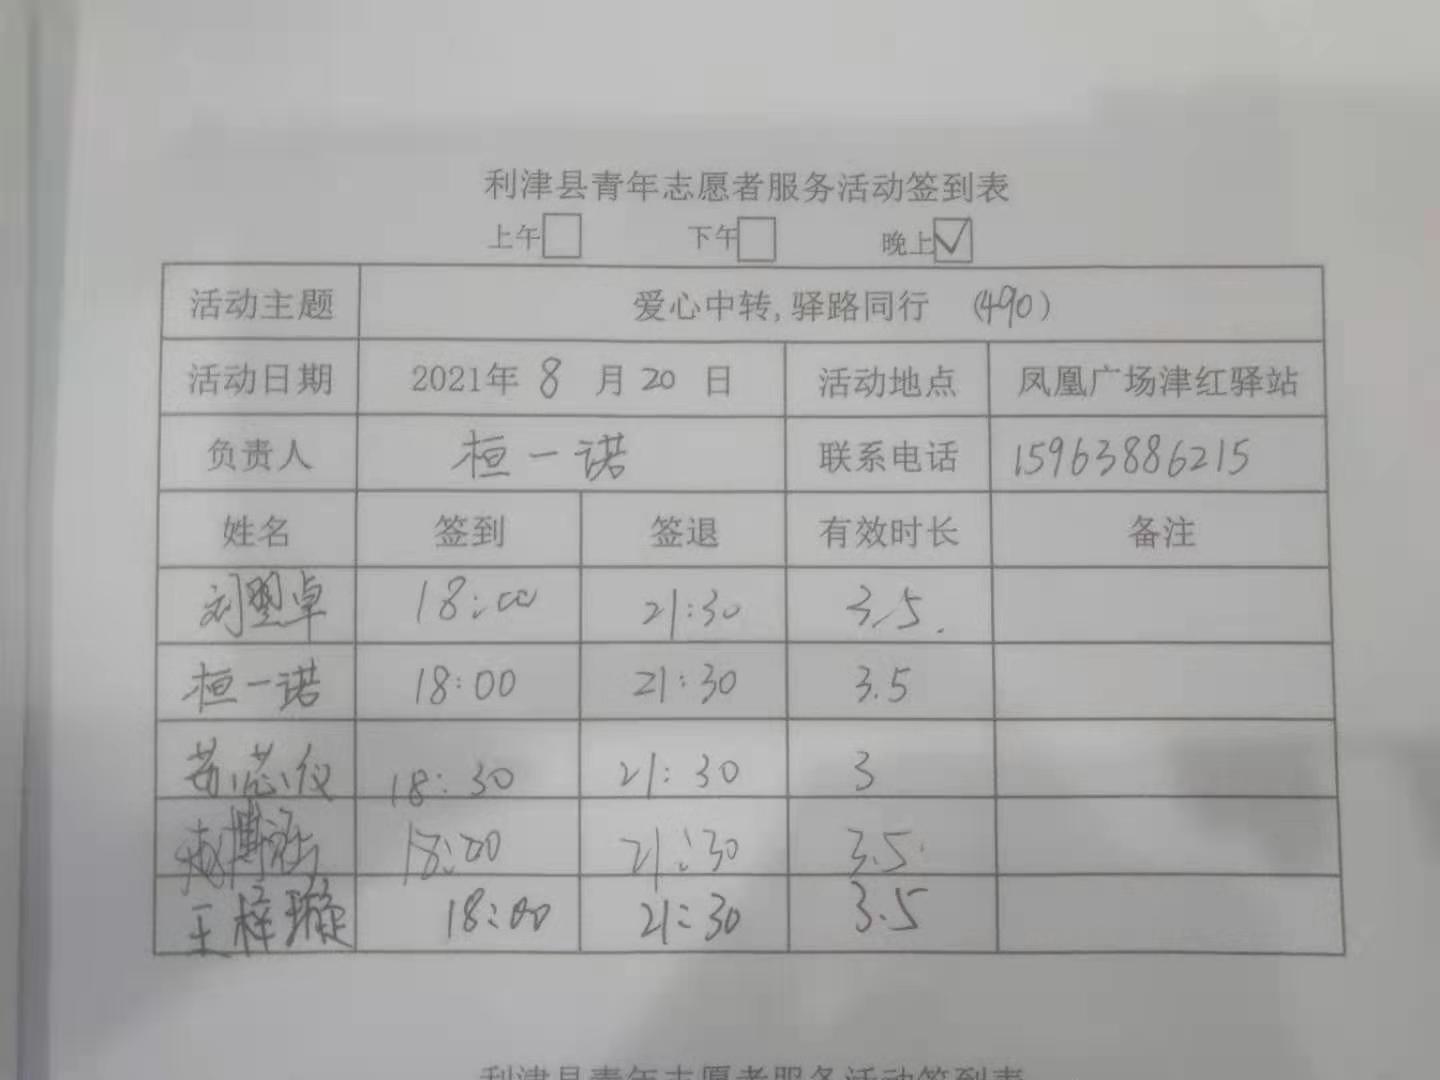 利津县青年志愿者服务活动签到表
上午 下午 晚上
活动主题 爱心中转,驿路同行 (490)
活动日期 2021年 8 月 20 日 活动地点 凤凰广场津红驿站
负责人 桓一诺 联系电话 15963886215
姓名 签到 签退 有效时长 备注
刘曌卓 18:00 21:30 3.5
桓一诺 18:00 21:30 3.5
苏芯仪 18:30 21:30 3
赵博涵 18:00 21:30 3.5
王梓璇 18:00 21:30 3.5
利津县青年志愿者服务活动签到表